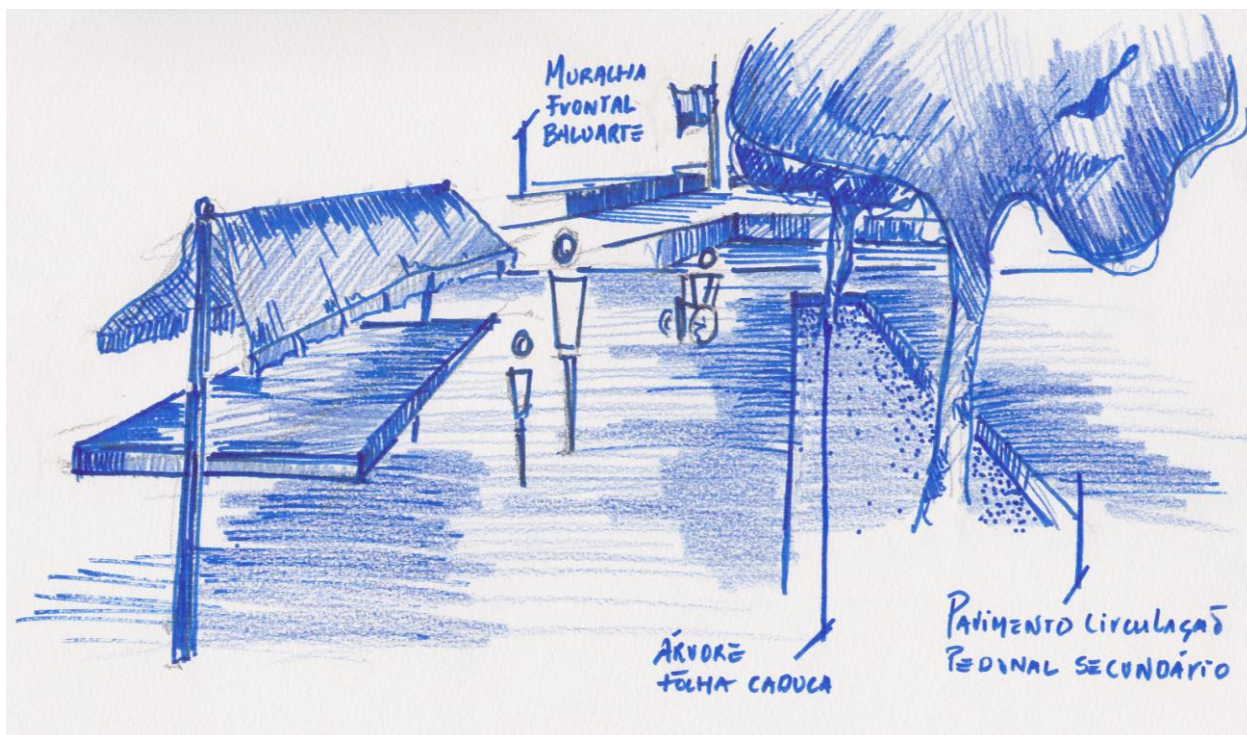 MURALHA
FRONTAL
BALUARTE
ÁRVORE
FOLHA CADUCA
PAVIMENTO CIRCULAÇÃO
PEDONAL SECUNDÁRIO